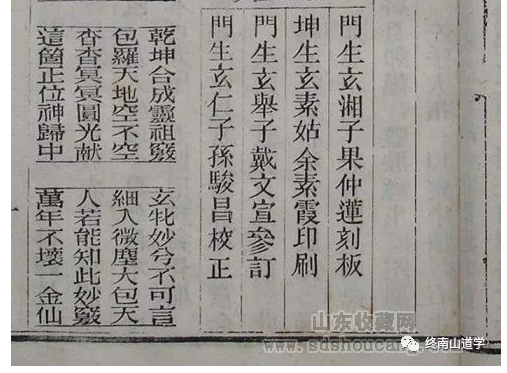 門生玄湘子果仲蓮刻板
坤生玄素姑余素霞印刷
門生玄舉子戴文宣參訂
門生玄仁子孫駿昌校正
乾坤合成靈祖竅
包羅天地空不空
杳杳冥冥圓光献
這箇正位神歸中
玄牝妙兮不可言
細入微塵大包天
人若能知此妙竅
萬年不壞一金仙
山东收藏网
终南山道学